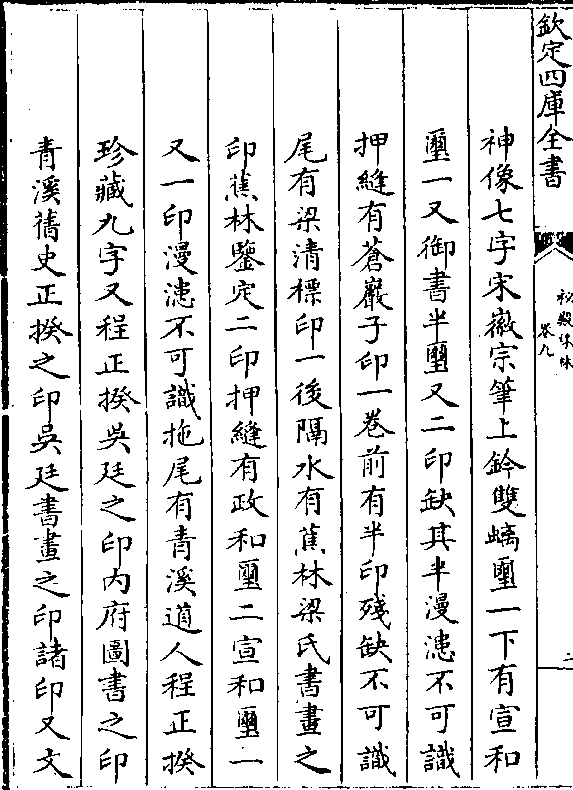 欽定四庫全書
秘殿珠林
卷九
二
神像七字宋徽宗筆上鈐雙螭璽一下有宣和
璽一又御書半璽又二印缺其半漫漶不可識
押縫有蒼巖子印一卷前有半印殘缺不可識
尾有梁清標印一後隔水有蕉林梁氏書畫之
印蕉林鑒定二印押縫有政和璽二宣和璽一
又一印漫漶不可識拖尾有青溪道人程正揆
珍藏九字又程正揆吳廷之印內府圖書之印
青溪舊史正揆之印吳廷書畫之印諸印又文